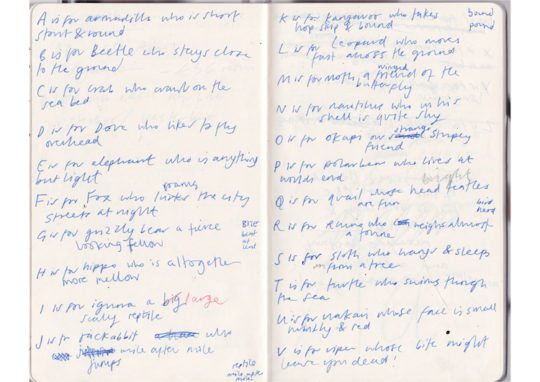 A is for armadillo who is short
stout & round
B is for Beetle who stays close
to the ground
C is for crab who crawl on the
sea bed
D is for Dove who likes to fly
overhead
E is for elephant who is anything
but light
roams
F is for Fox who the city
streets at night
G is for grizzly bear a fierce
looking fellow
H is for hippo who is altogether
more mellow
I is for ignora a big large
scaly reptile
J is for jackrabbit who
mile after mile
jumps
reptile
mile after
mile
K is for kangaroo who takes
hop skip & bound
bound
pound
L is for Leopard who moves
fast across the ground
winged
M is for Moth, a friend of the
butterfly
N is for nautilus who in his
shell is quite shy
strange
O is for okapi our stripey
friend
P is for polar bear who lives at
worlds end
bright
Q is for quail whose head featles
are fun
bird
head
R is for Rhino who weighs almost
a tonne
S is for sloth who hangs & sleeps
from a tree
T is for turtle who swims though
the sea
U is for Uakari whose face is small
& red
V is for viper whose bite might
leave you dead!